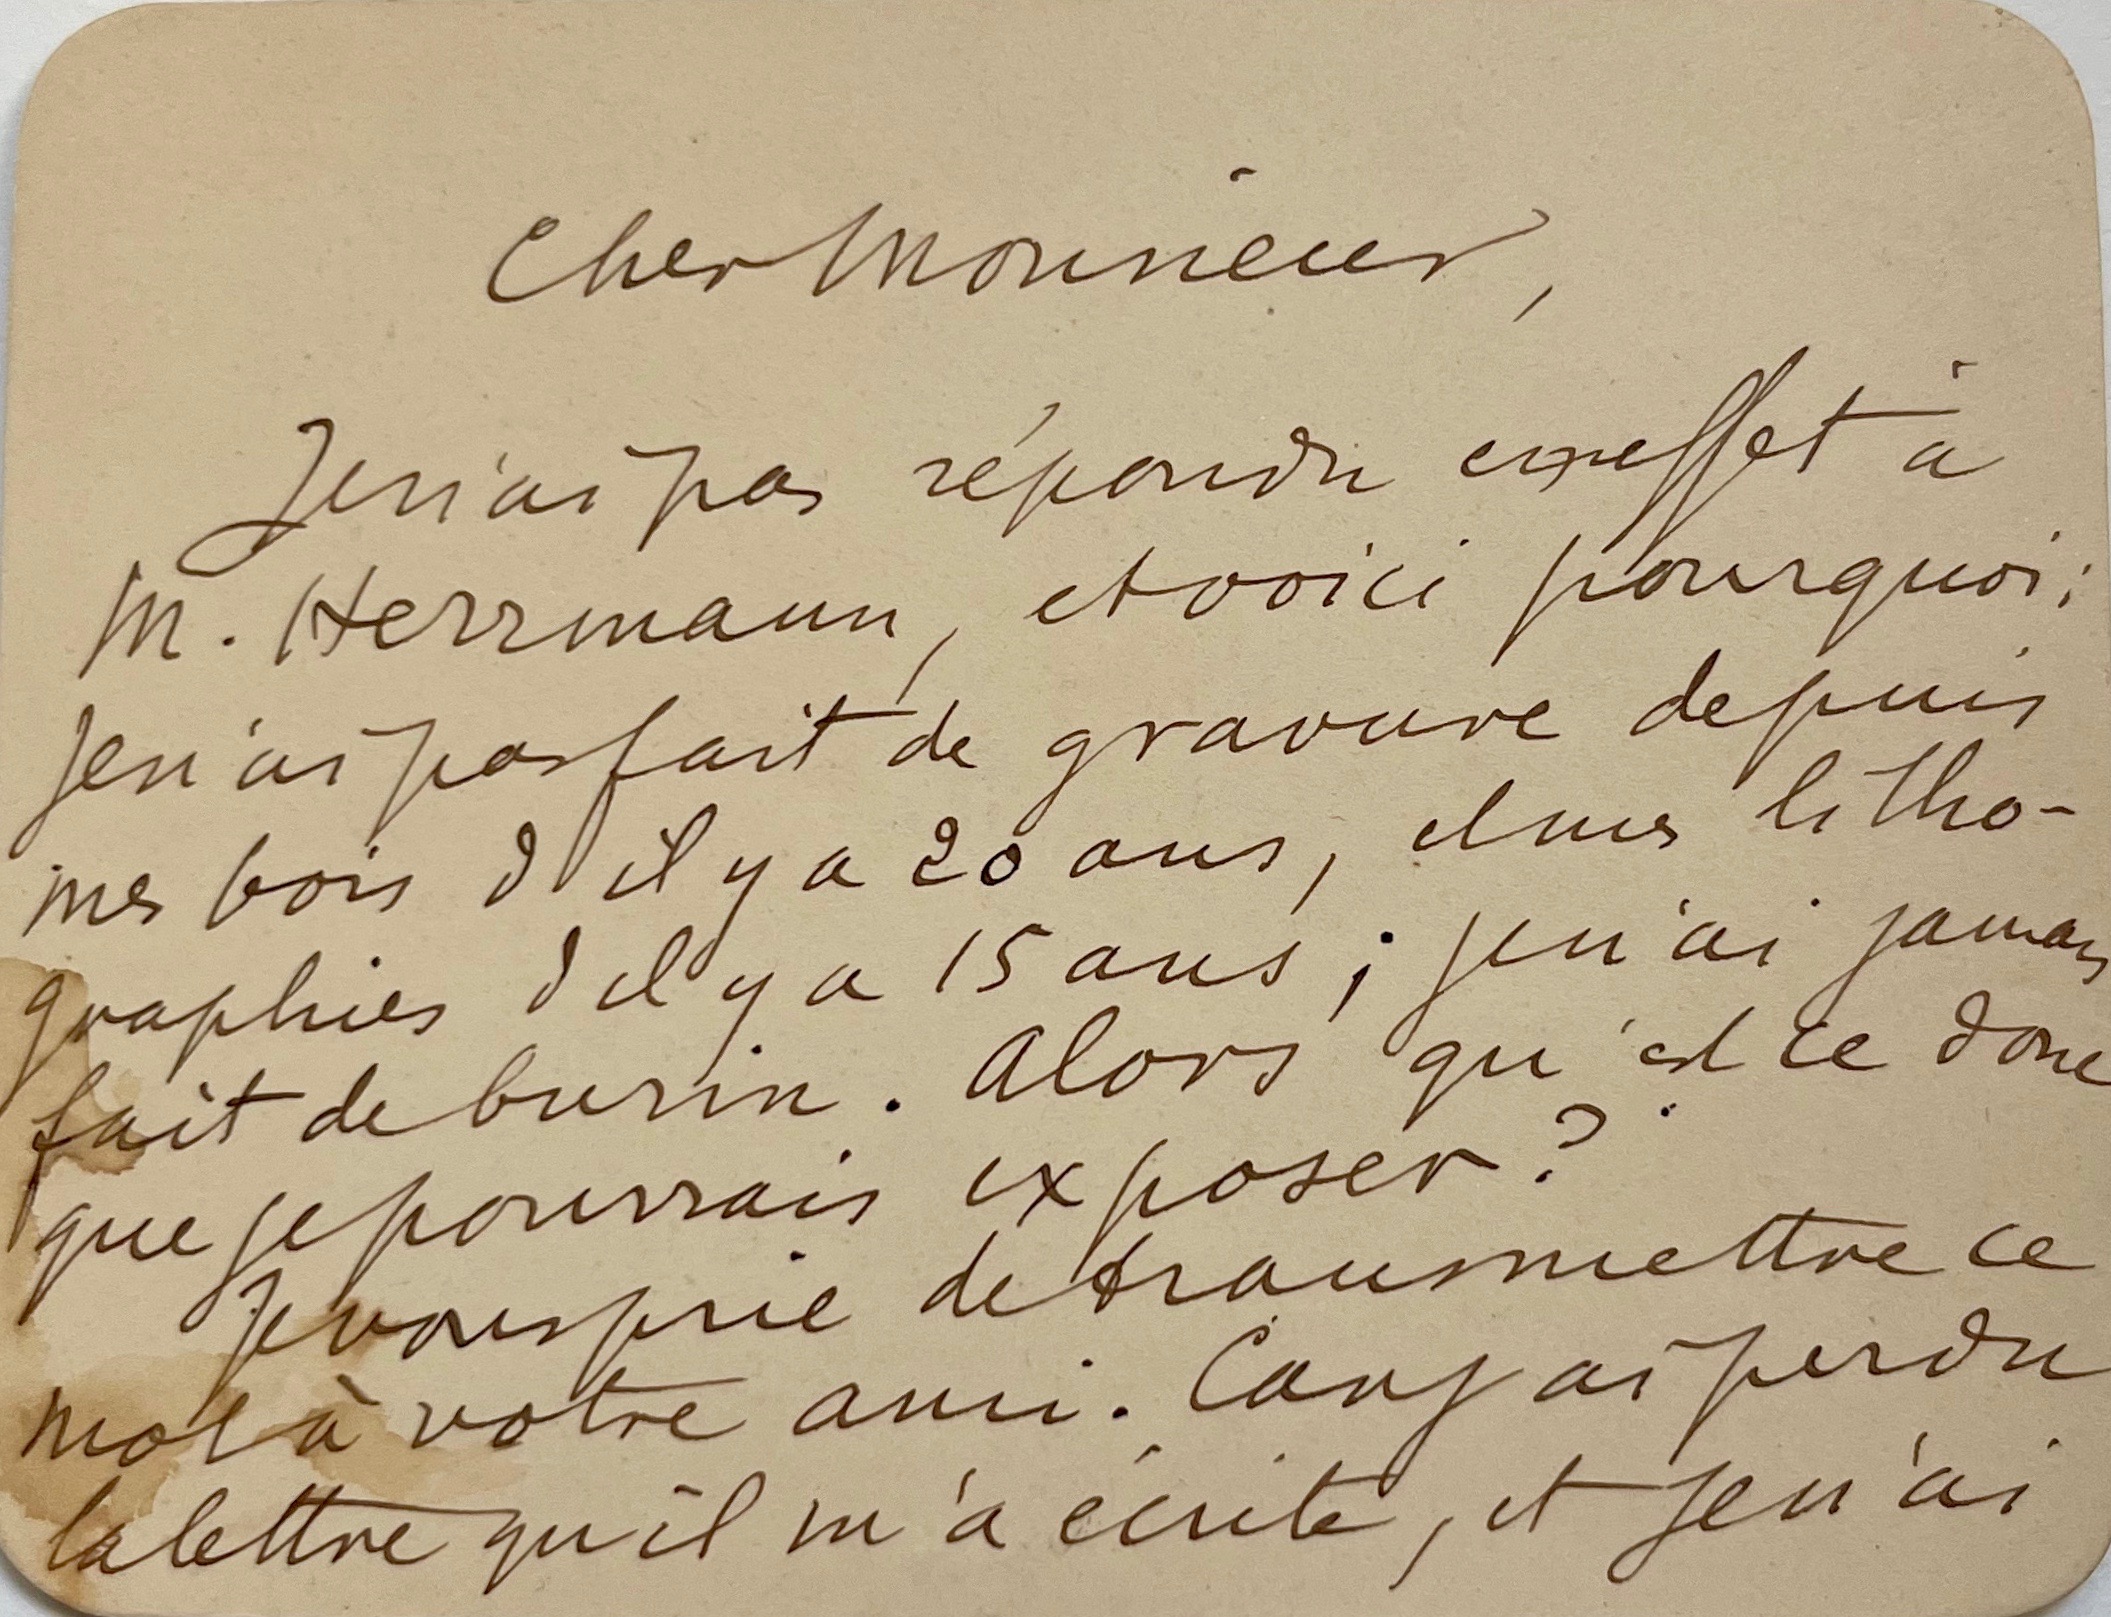 Cher Monsieur,
Je n'ai pas répondu en effet à
M. Herrmann, et voici pourquoi :
je n'ai pas fait de gravure depuis
mes bois d'il y a 20 ans, et mes litho-
graphies d'il y a 15 ans ; je n'ai jamais
fait de burin. Alors qu'est ce donc
que je pourrais exposer ?
Je vous prie de transmettre ce
mot à votre ami. Car j'ai perdu
la lettre qu'il m'a écrite, et je n'ai